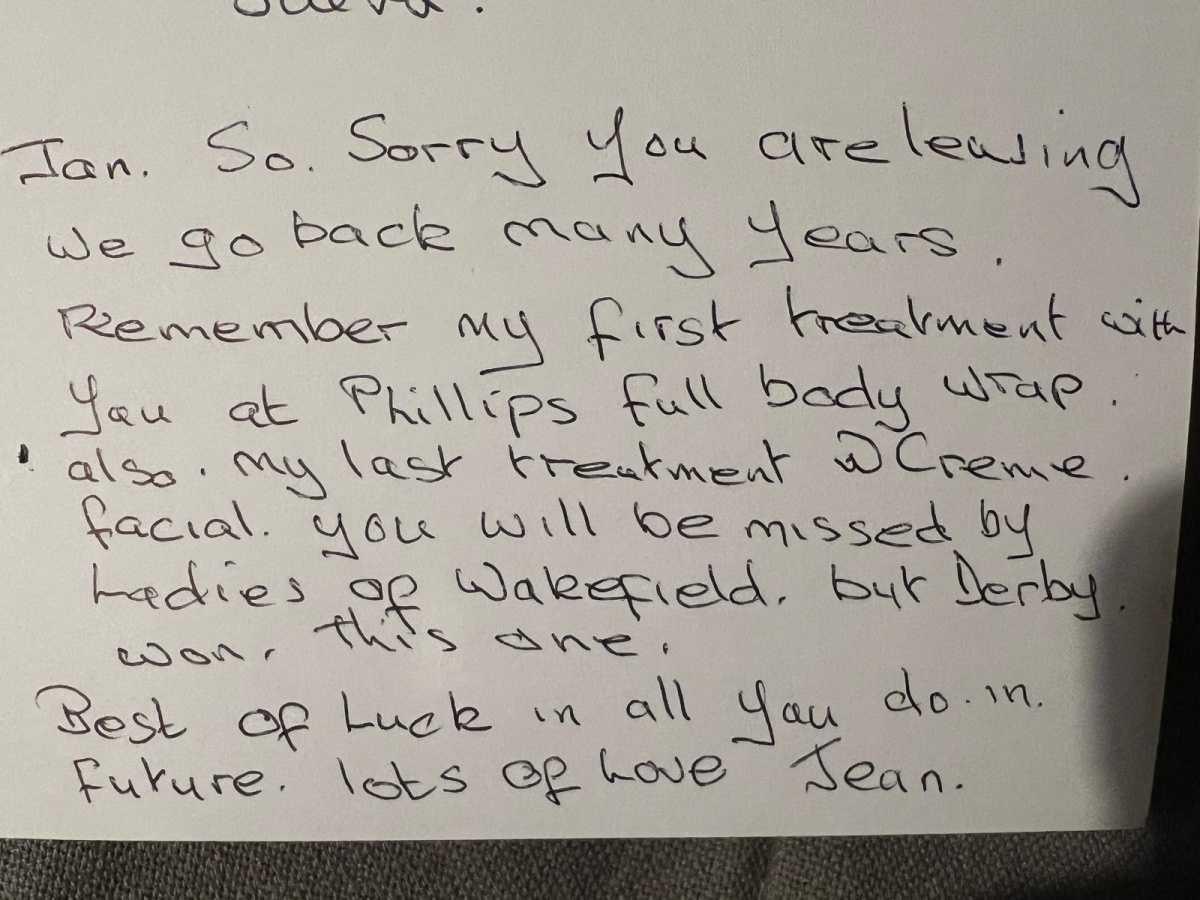 Jan. So. Sorry you are leaving
we go back many years.
Remember my first treatment with
you at Phillips full body wrap.
also. my last treatment Creme.
facial. you will be missed by
Ladies of Wakefield. but Derby.
won. this one.
Best of Luck in all you do. in.
future. lots of Love Jean.